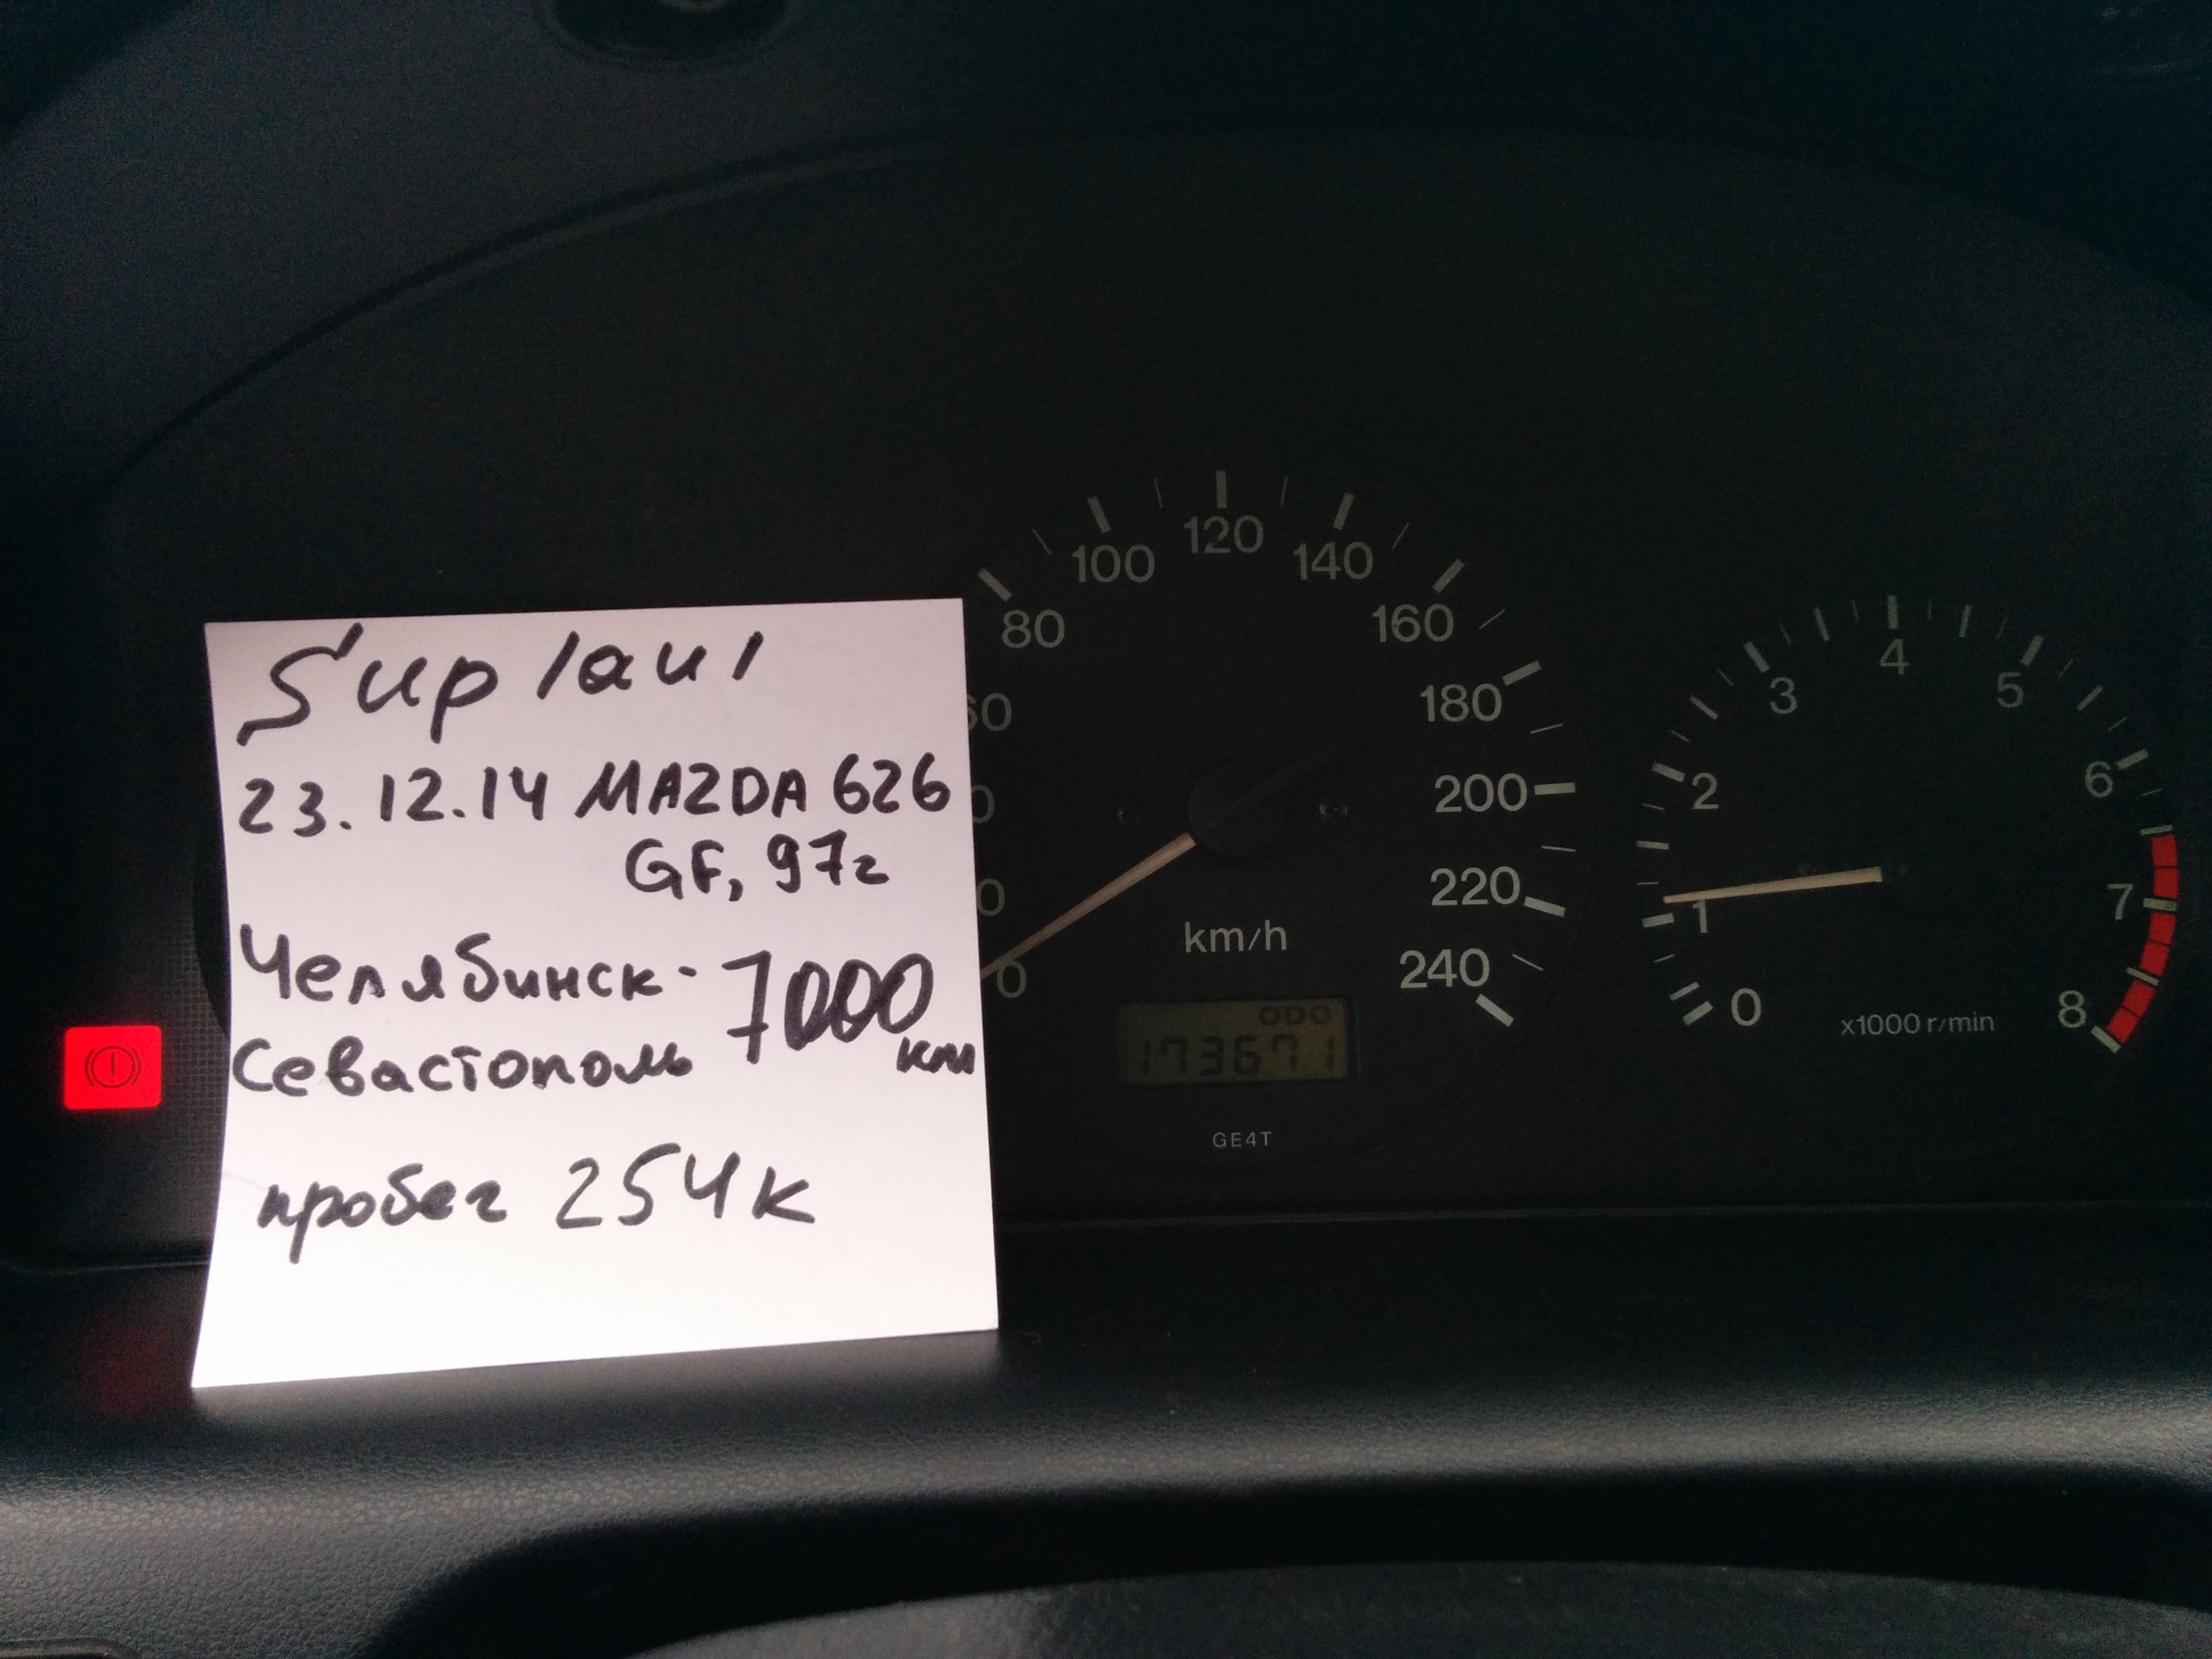 Suplaul
23.12.14 MAZDA 626
GF, 97г
Челябинск-
Севастополь 7000 км
пробег 254к
80
100
120
140
160
180
200
220
240
0
km/h
ODO
173671
GE4T
0
1
2
3
4
5
6
7
8
x1000 r/min